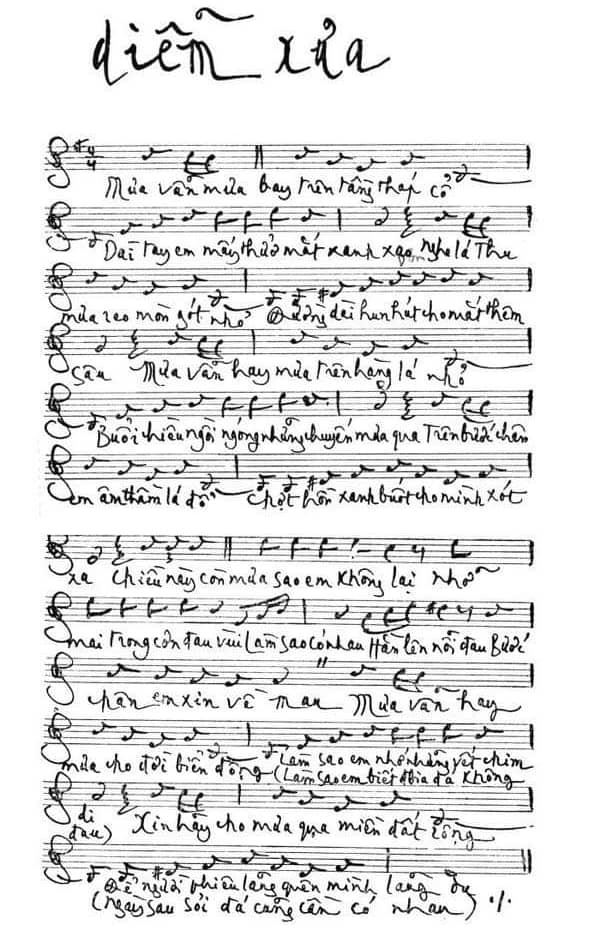 diễm xưa
Mưa vẫn mưa bay trên tầng tháp cổ
Dài tay em mấy thuở mắt xanh xao Nghe lá Thu
mưa reo mòn gót nhỏ Đường dài hun hút cho mắt thêm
sâu Mưa vẫn hay mưa trên hàng lá nhỏ
Buổi chiều ngồi ngóng những chuyến mưa qua Trên bước chân
em âm thầm lá đổ Chợt hồn xanh buốt cho mình xót
xa Chiều này còn mưa sao em không lại Nhỡ
mai trong cơn đau vùi Làm sao có nhau Hằn lên nỗi đau Bước
chân em xin về mau Mưa vẫn hay
mưa cho đời biển động Làm sao em nhớ những vết chim
(Làm sao em biết bia đá không
di
đau) Xin hãy cho mưa qua miền đất rộng
Để người phiêu lãng quên mình lãng du
(ngày sau sỏi đá cũng cần có nhau)